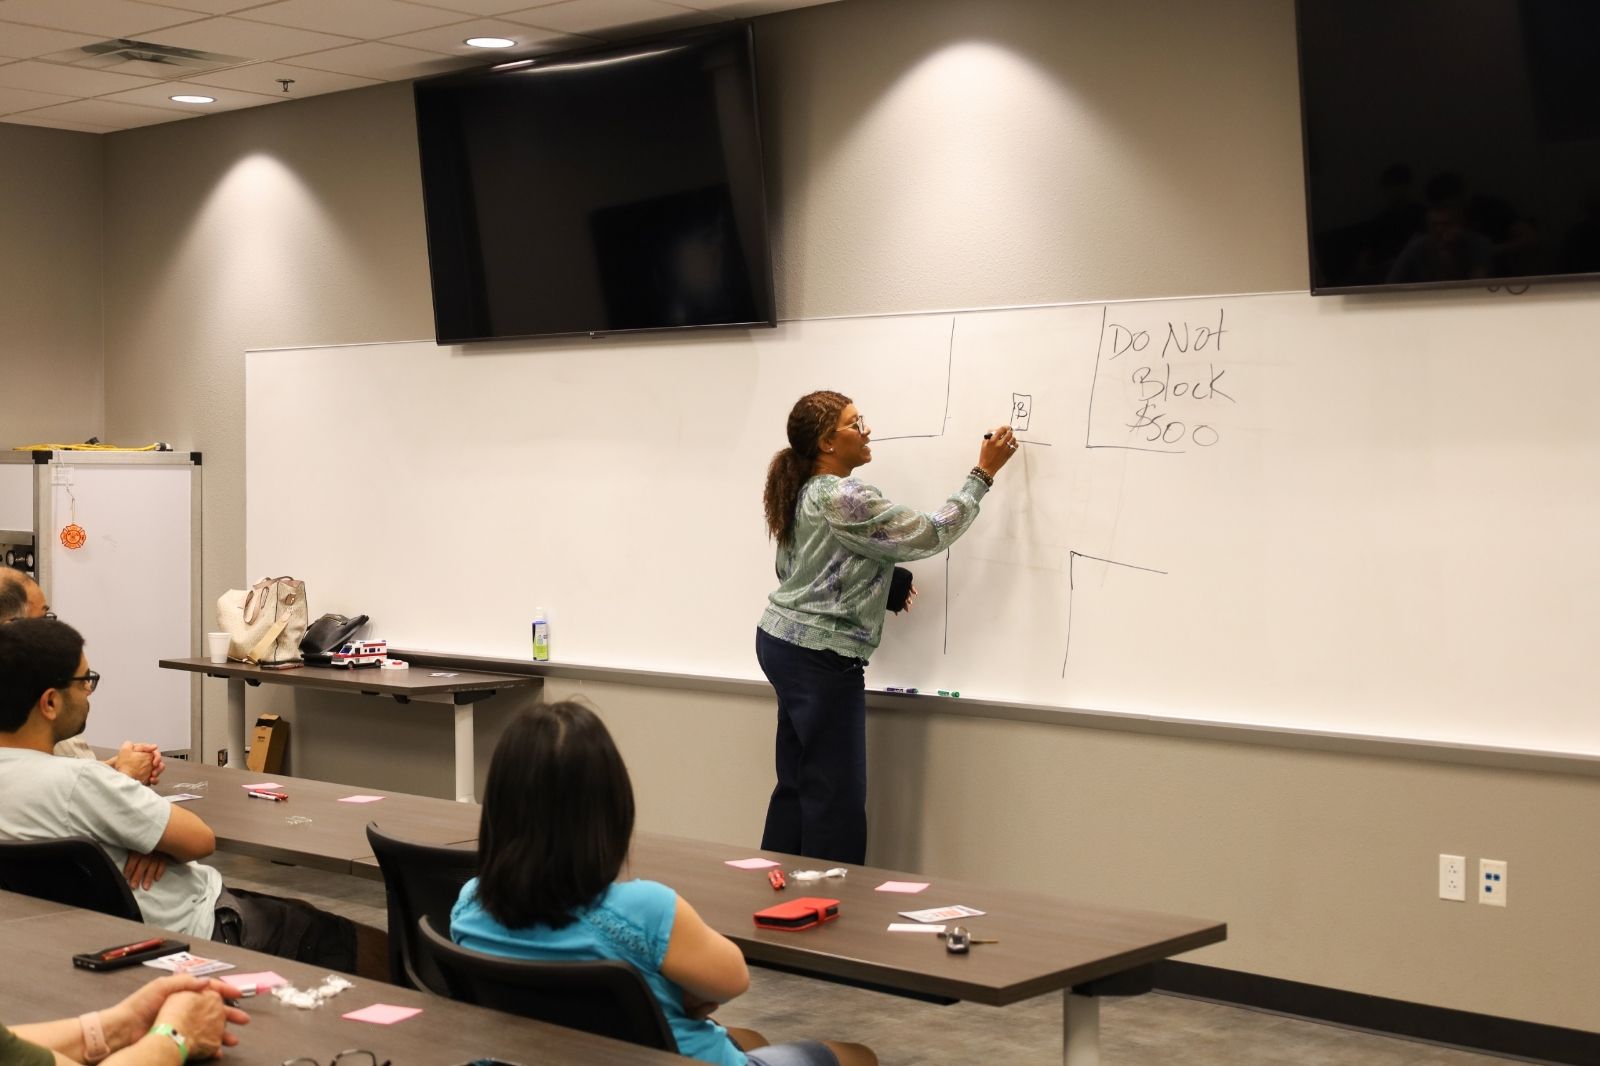 B
Do Not
Block
$500